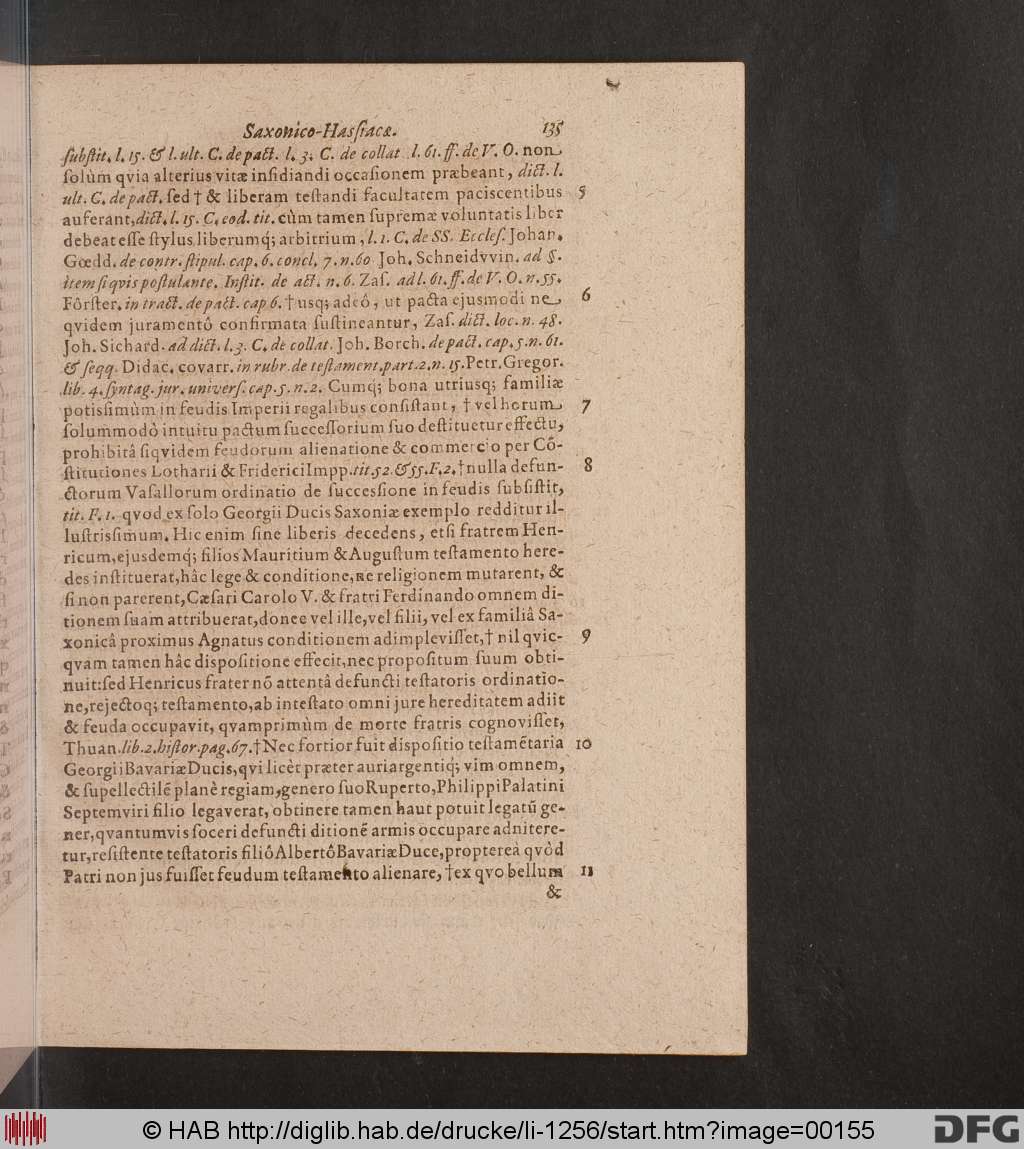 Saxonico-Hassiacæ. 135
ſubſtit. l. 15. & l. ult. C. de pact. l. 3. C. de collat. l. 61. ff. de V. O. non
ſolùm qvia alterius vitæ inſidiandi occaſionem præbeant, dict. l.
ult. C. de pact. ſed † & liberam teſtandi facultatem paciscentibus 5
auferant, dict. l. 15. C. eod. tit. cùm tamen ſupremæ voluntatis liber
debeat eſſe ſtylus, liberumq́; arbitrium, l. 1. C. de SS. Eccleſ. Johan.
Gœdd. de contr. ſtipul. cap. 6. concl. 7. n. 60 Joh. Schneidvvin. ad §.
item ſi qvis poſtulante. Inſtit. de act. n. 6. Zaſ. ad l. 61. ff. de V. O. n. 55.
Fôrſter. in tract. de pact. cap 6. † usq; adeô, ut pacta ejusmodi ne 6
qvidem juramentô confirmata ſuſtineantur, Zaſ. dict. loc. n. 48.
Joh. Sichard. ad dict. l. 3. C. de collat. Joh. Borch. de pact. cap. 5. n. 61.
& ſeqq. Didac. covarr. in rubr. de teſtament. part. 2. n. 15. Petr. Gregor.
lib. 4. ſyntag. jur. univerſ. cap. 5. n. 2. Cumq́; bona utriusq; familiæ
potisſimùm in feudis Imperii regalibus conſiſtant, † vel horum 7
ſolummodò intuitu pactum ſucceſſorium ſuo deſtituetur effectu,
prohibitâ ſiqvidem feudorum alienatione & commercio per Cõ-
ſtitutiones Lotharii & Friderici Impp. tit. 52. & 55. F. 2. † nulla defun- 8
ctorum Vaſallorum ordinatio de ſuccesſione in feudis ſubſiſtit,
tit. F. 1. qvod ex ſolo Georgii Ducis Saxoniæ exemplo redditur il-
luſtrisſimum. Hic enim ſine liberis decedens, etſi fratrem Hen-
ricum, ejusdemq́; filios Mauritium & Auguſtum teſtamento here-
des inſtituerat, hâc lege & conditione, ne religionem mutarent, &
ſi non parerent, Cæſari Carolo V. & fratri Ferdinando omnem di-
tionem ſuam attribuerat, donec vel ille, vel filii, vel ex familiâ Sa-
xonicâ proximus Agnatus conditionem adimpleviſſet, † nil qvic- 9
qvam tamen hâc dispoſitione effecit, nec propoſitum ſuum obti-
nuit: ſed Henricus frater nõ attentâ defuncti teſtatoris ordinatio-
ne, rejectoq; teſtamento, ab inteſtato omni jure hereditatem adiit
& feuda occupavit, qvamprimùm de morte fratris cognoviſſet,
Thuan. lib. 2. hiſtor. pag. 67. † Nec fortior fuit dispoſitio teſtamẽtaria 10
Georgii Bavariæ Ducis, qvi licèt præter auri argentiq́; vim omnem,
& ſupellectilẽ planè regiam, genero ſuo Ruperto, Philippi Palatini
Septemviri filio legaverat, obtinere tamen haut potuit legatũ ge-
ner, qvantumvis ſoceri defuncti ditionẽ armis occupare adnitere-
tur, reſiſtente teſtatoris filiô Albertô Bavariæ Duce, propterea qvòd
Patri non jus fuiſſet feudum teſtamento alienare, † ex qvo bellum 11
&
© HAB http://diglib.hab.de/drucke/li-1256/start.htm?image=00155
DFG